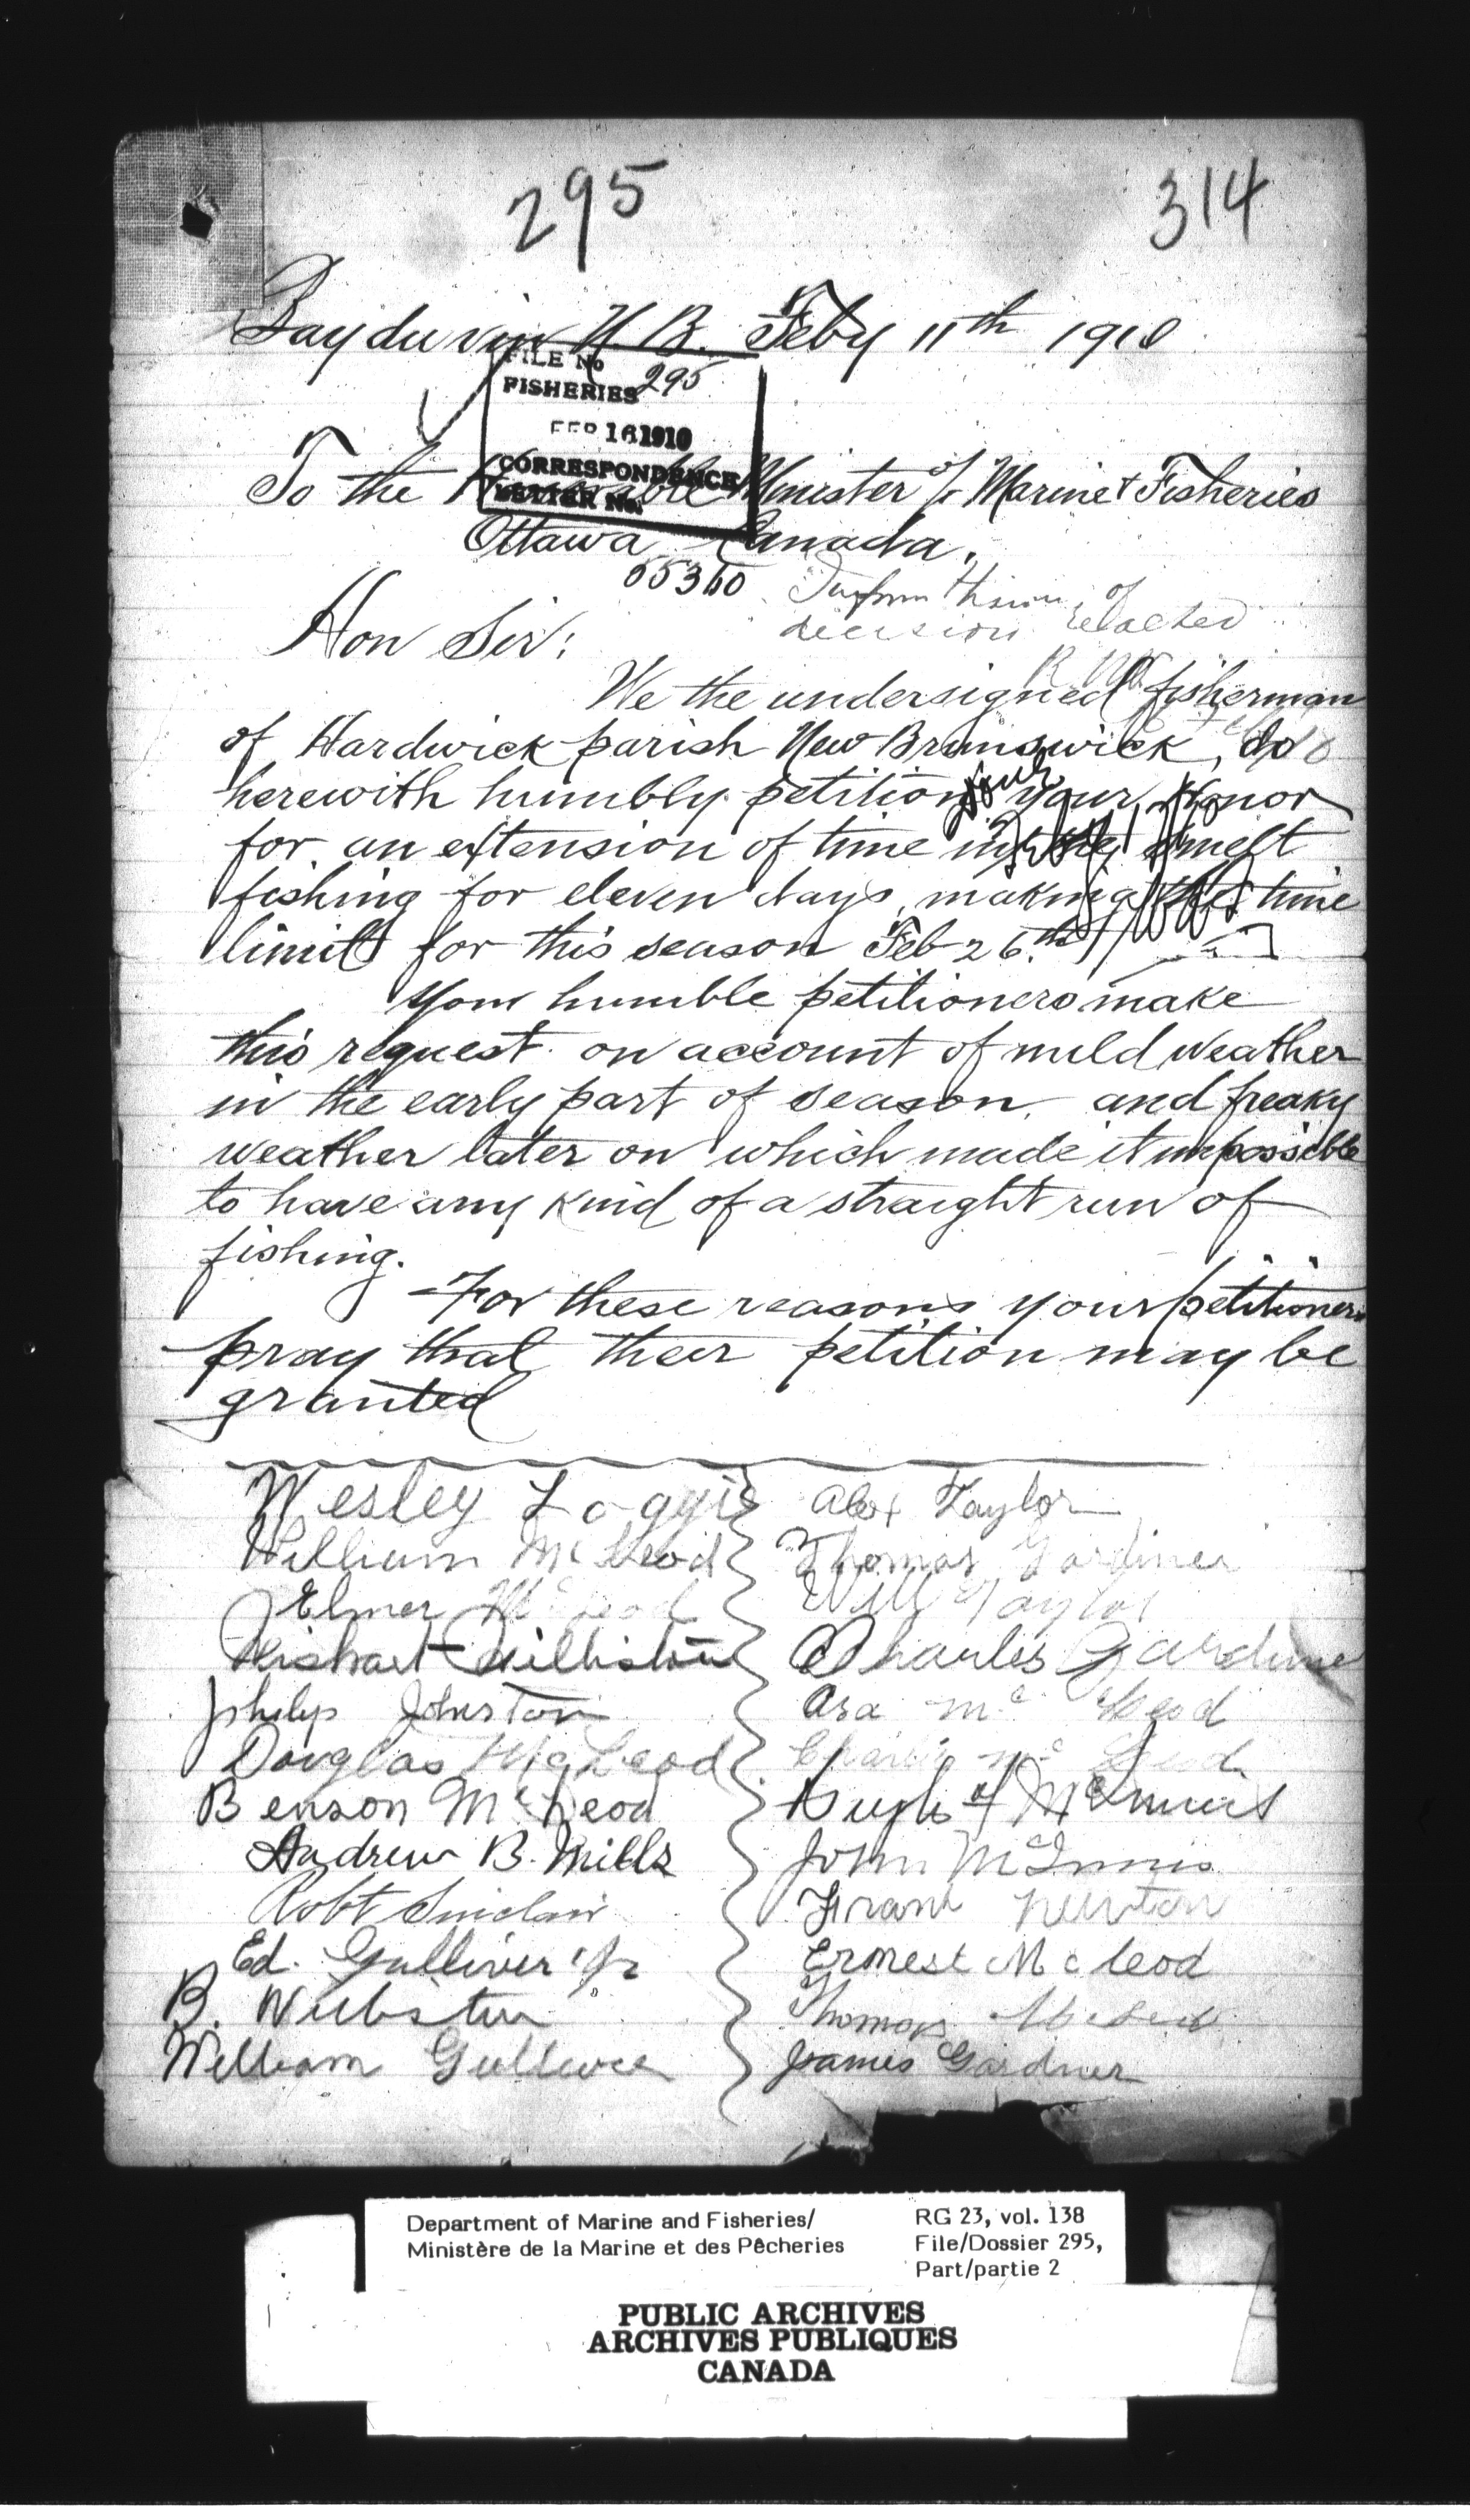 295
314
Bay du vin N.B. Feby 11th 1910
FILE No
FISHERIES 295
FEB 16 1910
CORRESPONDENCE
LETTER No.
To the Honorable Minister of Marine & Fisheries
Ottawa Canada.
Hon Sir:
decision
We the undersigned fisherman
of Hardwick parish New Brunswick, do
herewith humbly petition your Honor
for an extension of time in the smelt
fishing for eleven days, making the time
limit for this season Feb 26th
Your humble petitioners make
this request on account of mild weather
in the early part of season and freaky
weather later on which made it impossible
to have any kind of a straight run of
fishing.
For these reasons your petitioners
pray that their petition may be
granted
Wesley Loggie Alex Taylor
William McLeod Thomas Gardiner
Elmer McLeod Will Taylor
Williston Charles Gardine
Philip Johnston Asa McLeod
Douglas McLeod Charlie McLeod
Benson McLeod Hugh McInnis
Andrew B. Mills John McInnis
Robt Sinclair Frank Newton
Ed. Gulliver Jr Ernest McLeod
B. Webster Thomas
William Gulliver James Gardner
Department of Marine and Fisheries/
Ministère de la Marine et des Pêcheries
RG 23, vol. 138
File/Dossier 295,
Part/partie 2
PUBLIC ARCHIVES
ARCHIVES PUBLIQUES
CANADA